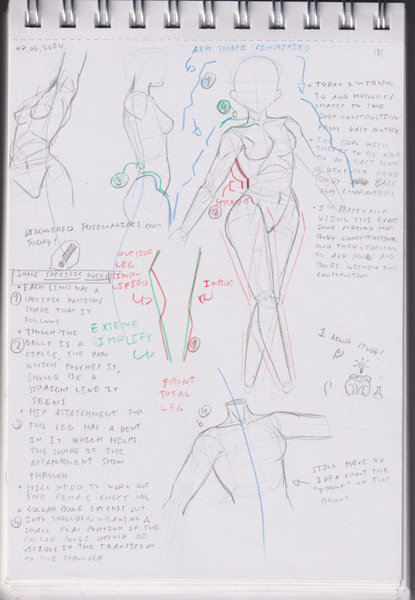 ARM SHAPE SIMPLIFIED
TODAY I'M TRYING
TO ADD MUSCLES/
SHAPES TO THE
BODY CONSTRUCTION
FROM
THE GOAL WITH
THIS IS TO BE ABLE
GOOD
BODY BASE
FOR CHARACTERS
I'M BASICALLY
USING THE
SAME
BODY CONSTRUCTION
AND THEN LEARNING
TO ADD
WITHIN THE
CONSTRUCTION
DISCOVERED POSEMANIACS.COM
TODAY!
STRAIGHT
SOME SPECIFIC NOTES
EACH LIMB HAS A
1 SPECIFIC PATTERN/
SHAPE THAT IT
FOLLOWS
THOUGH THE
2 BELLY IS A
CIRCLE, THE PART
WHICH TOUCHES IT,
SHOULD BE A
STRAIGHT LINE IT
SEEMS
HIP ATTACHMENT FOR
3 THE LEG HAS A DENT
IN IT WHICH HELPS
THE SHAPE OF THE
ATTACHMENT SHOW
THROUGH
STILL NEED TO WORK OUT
THE FEMALE CHEST LOL
COLLAR BONE EXTENDS OUT
INTO SHOULDER, MEANING A
SMALL FLAT PORTION OF THE
COLLAR BONES SHOULD BE
VISIBLE IN THE TRANSITION
TO THE SHOULDER
OUTSIDE
LEG
SIMP-
LIFIED
INSIDE
EXTEME
SIMPLIFY
FRONT
TOTAL
LEG
1 HOUR STUDY!
STILL HAVE NO
IDEA ABOUT THE
"FRONT" OF THE